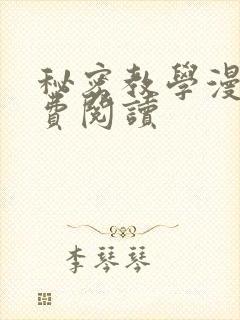 秘密教學漫
費閱讀
李琴琴